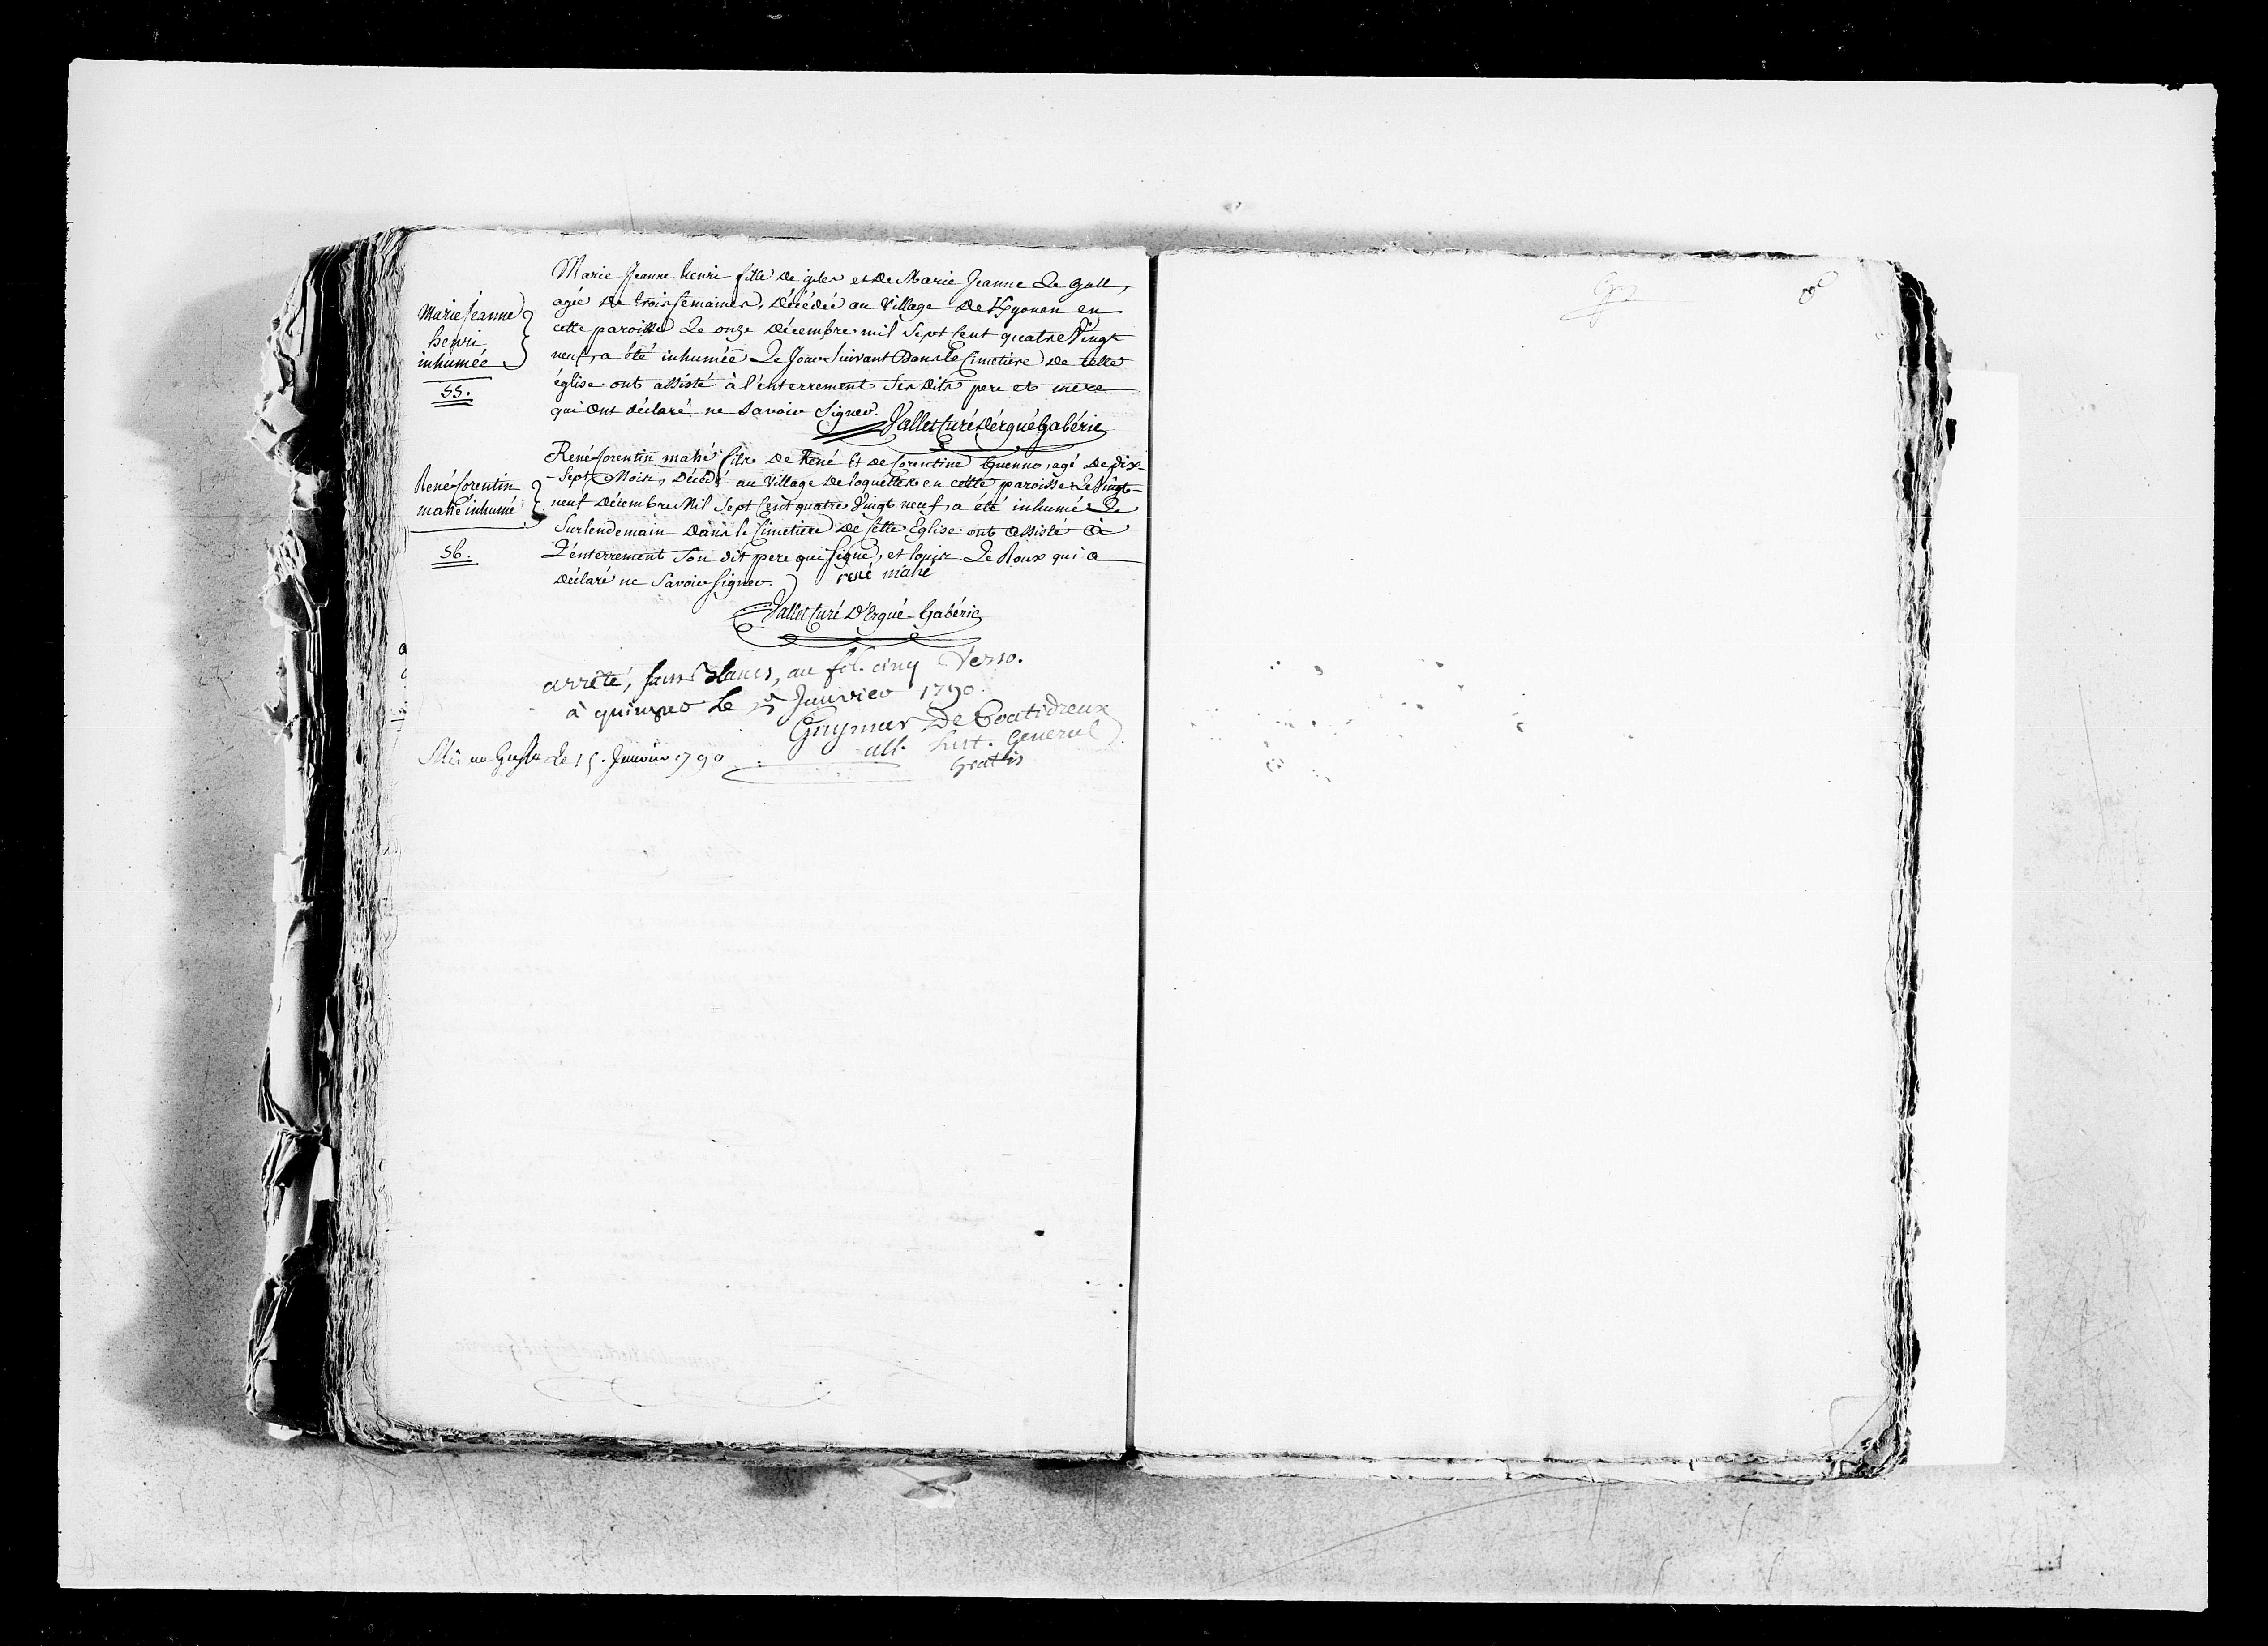 Marie Jeanne
henri
inhumée
55.
Marie Jeanne henri fille de gilles et de Marie Jeanne Le Gall,
agée de trois semaines, décédée au village de Kgonan en
cette paroisse Le onze décembre mil sept Cent quatre Vingt
neuf, a été inhumée Le Jour suivant dans le Cimetiere de cette
église ont assisté à l'enterrement ses dits pere et mere
qui ont déclaré ne savoir signer. Vallet Curé d'ergué Gabéric
René Corentin
mahé inhumé
56.
René Corentin mahé fils de René Et de Corentine Guenno, agé de dix-
-Sept Mois, décédé au village de en cette paroisse Le Vingt-
neuf décembre Mil Sept Cent quatre Vingt neuf, a été inhumé Le
Surlendemain dans le Cimetiere de Cette Eglise ont assisté à
L'enterrement Son dit pere qui signe, et Louise Le Roux qui a
déclaré ne Savoir signer. rené mahé
Vallet Curé d'Ergué-Gabéric
arrêté, sans blancs, au fol. cinq Verso.
à quimper Le 15 Janvier 1790.
Guymar De Coatidreux
all. Lieut. General
Gratis
au Greffe Le 15. Janvier 1790